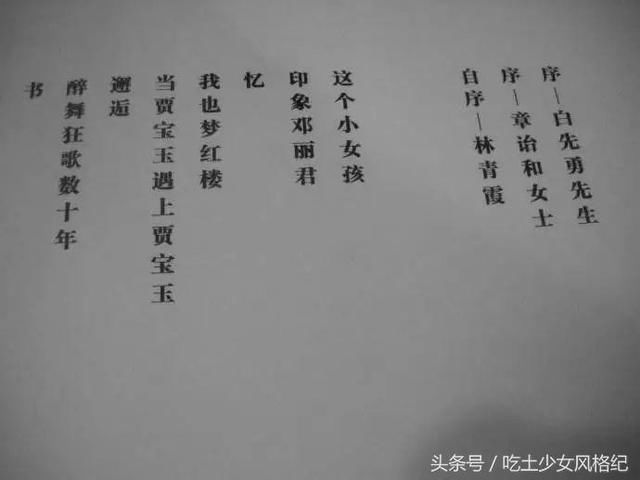 序—白先勇先生
序—章诒和女士
自序—林青霞
这个小女孩
印象邓丽君
忆
我也梦红楼
当贾宝玉遇上贾宝玉
邂逅
醉舞狂歌数十年
书
头条号／吃土少女风格纪